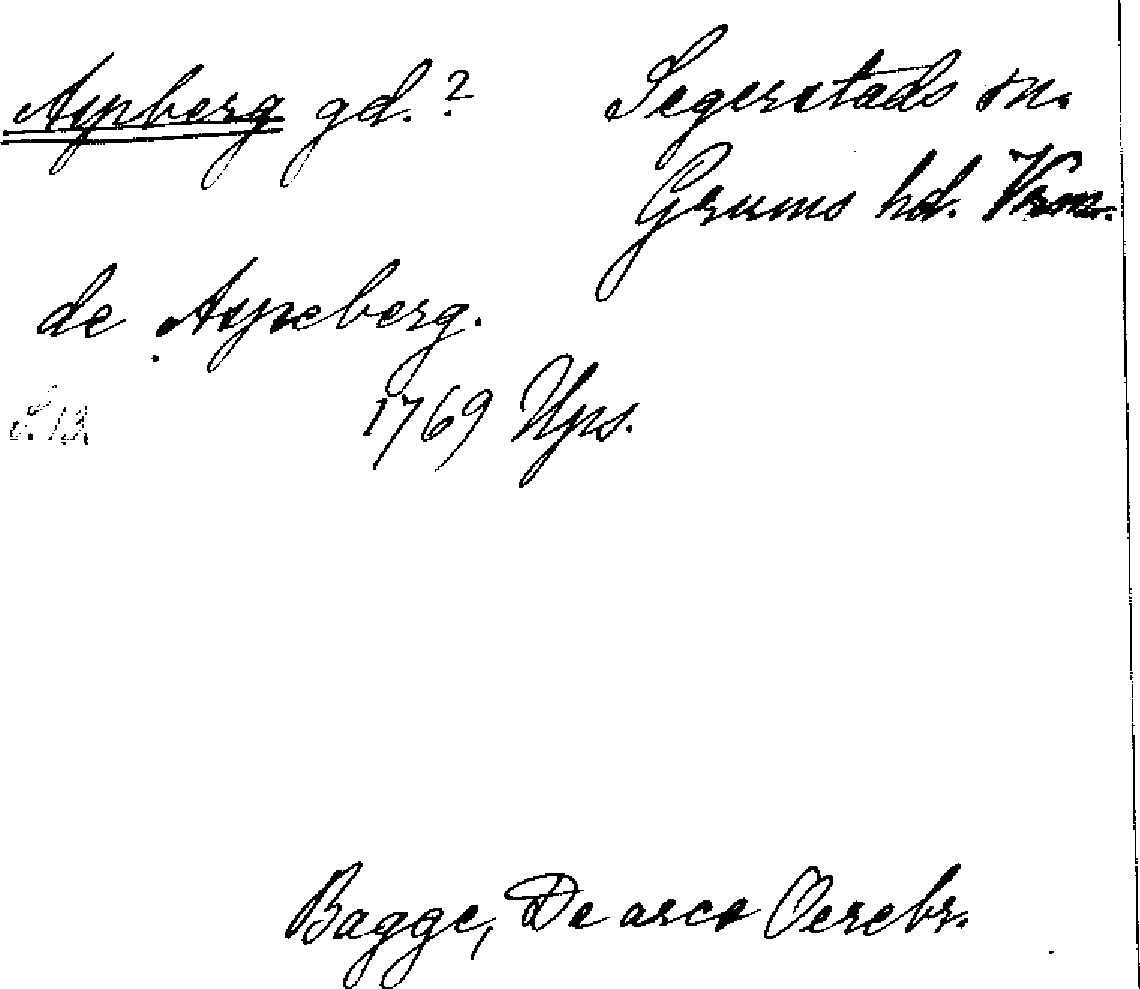 Aspberg gd.? Segerstads sn.
Grums hd. Vrm.
de Aspeberg.
1769 Ups.
Bagge, De arce Oerebr.